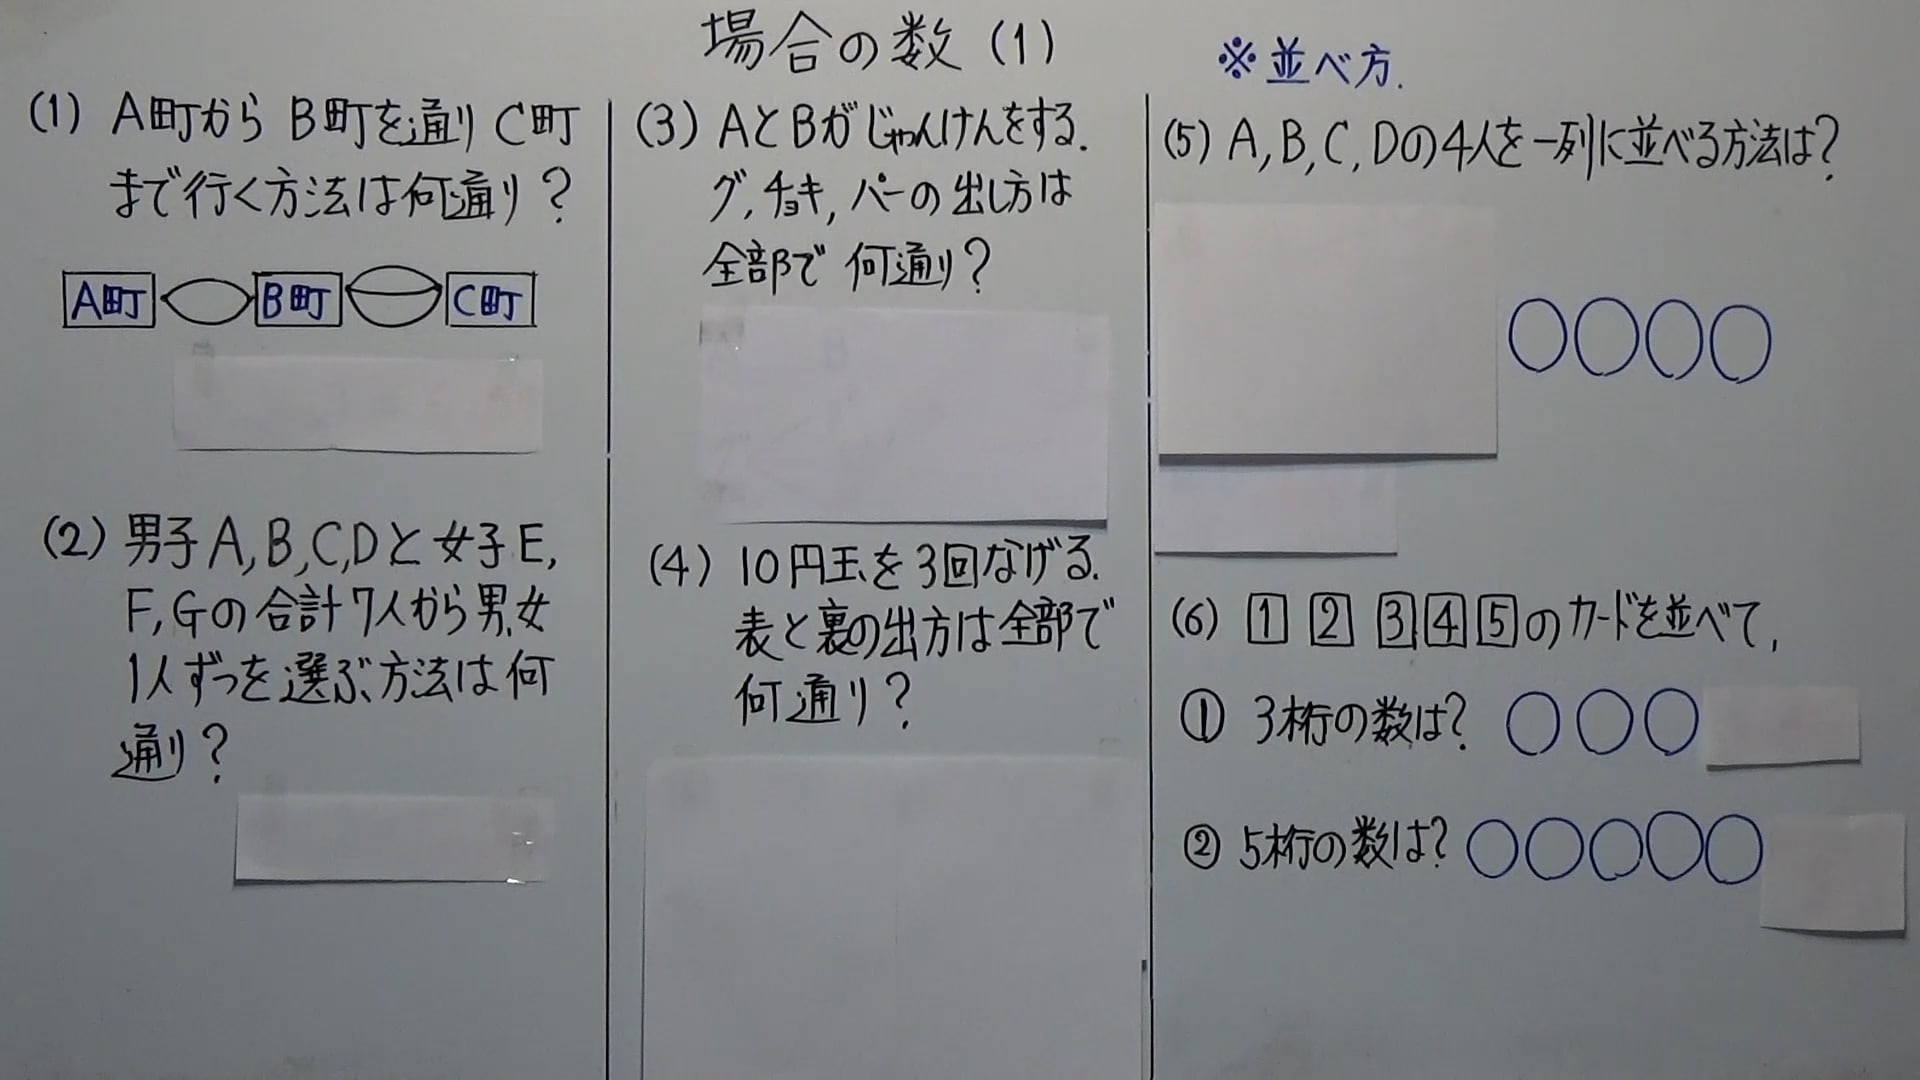 場合の数(1)
(1) A町から B町を通り C町
まで行く方法は何通り?
A町 B町 C町
(2) 男子A,B,C,Dと女子E,
F,Gの合計7人から男女
1人ずつを選ぶ方法は何
通り?
(3) AとBがじゃんけんをする.
グ,チョキ,パーの出し方は
全部で 何通り?
(4) 10円玉を3回なげる.
表と裏の出方は全部で
何通り?
※並べ方.
(5) A,B,C,Dの4人を一列に並べる方法は?
(6) 1 2 3 4 5のカードを並べて,
① 3桁の数は?
② 5桁の数は?